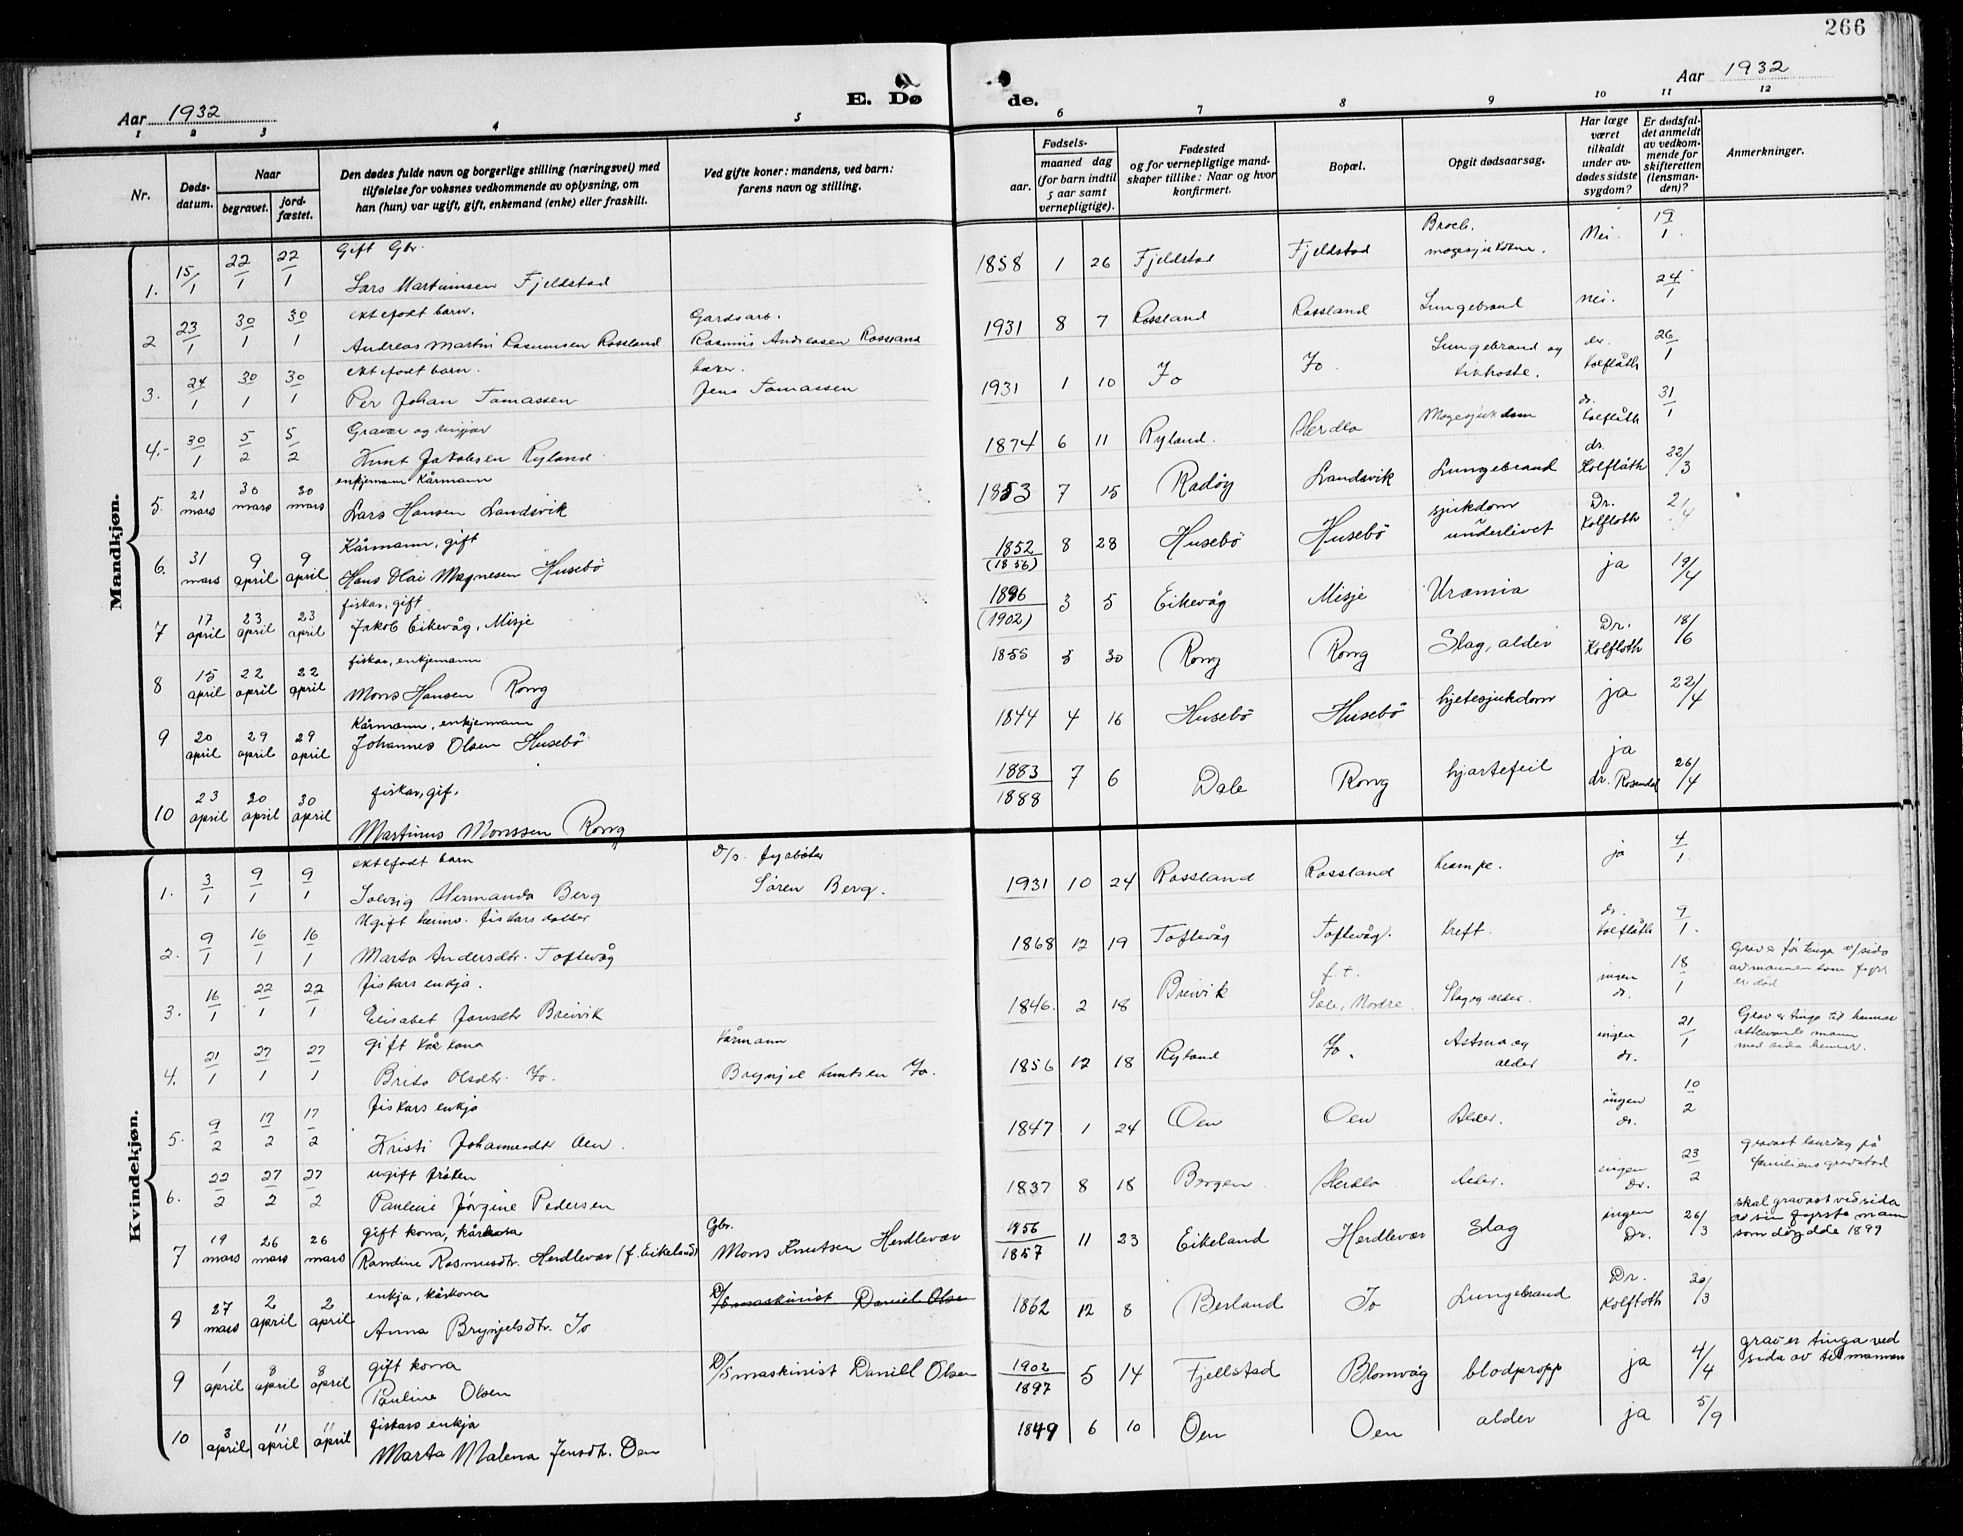 266
Aar 1932
E. Dø
de.
Aar 1932
1 2 3 4 5 6 7 8 9 10 11 12
Nr.
Døds-
datum.
Naar
begravet.
jord-
fæstet.
Den dødes fulde navn og borgerlige stilling (næringsvei) med
tilføielse for voksnes vedkommende av oplysning, om
han (hun) var ugift, gift, enkemand (enke) eller fraskilt.
Ved gifte koner: mandens, ved barn:
farens navn og stilling.
Fødsels-
aar.
maaned dag
(for barn indtil
5 aar samt
vernepligtige).
Fødested
og for vernepligtige mand-
skaper tillike: Naar og hvor
konfirmert.
Bopæl.
Opgit dødsaarsag.
Har læge
været
tilkaldt
under av-
dødes sidste
sygdom?
Er dødsfal-
det anmeldt
av vedkom-
mende for
skifteretten
(lensman-
den)?
Anmerkninger.
Mandkjøn.
Gift Gbr.
1. 15/1 22/1 22/1 Lars Martinusen Fjeldstad 1858 1 26 Fjeldstad Fjeldstad Brock, magesjukdom. Nei. 19/1
ektefødt barn. Gardsarb.
2 23/1 30/1 30/1 Andreas Martin Rasmusen Rossland Rasmus Andreasen Rossland 1931 8 7 Rossland Rossland Lungebrand nei. 24/1
ektefødt barn. baker.
3. 24/1 30/1 30/1 Per Johan Tomassen Jens Tomassen 1931 1 10 Jo Jo. Lungebrand og kikhoste. dr. Kolflåth 26/1
Gravar og ringjar
4. 30/1 5/2 5/2 Knut Jakobsen Ryland 1874 6 11 Ryland. Herdla Magesjukdom dr. Kolflåth 31/1
enkjemann Kårmann
5. 21 mars 30 mars 30 mars Lars Hansen Landsvik 1853 7 15 Radøy Landsvik Lungebrand dr. Kolflåth 22/3
Kårmann, gift
6. 31 mars 9 april 9 april Hans Olai Magnesen Husebö 1852 (1856) 8 28 Husebö Husebö sjukdom i underlivet Dr. Kolfloth 2/4
fiskar, gift
7 17 april 23 april 23 april Jakob Eikevåg, Misje 1896 (1902) 3 5 Eikevåg Misje Uræmia ja 19/4
fiskar, enkjemann
8 15 april 22 april 22 april Mons Hansen Rong 1855 5 30 Rong Rong Slag, alder Dr. Kolfloth 18/6
Kårmann, enkjemann
9 20 april 29 april 29 april Johannes Olsen Husebö 1844 4 16 Husebö Husebö hjetesjukdom ja 22/4
fiskar, gif.
10 23 april 20 april 30 april Martinus Monssen Rong 1883 1888 7 6 Dale Rong hjartefeil ja dr. Rosendal 26/4
Kvindekjøn.
ektefødt barn D/s. fyrbøter
1. 3/1 9/1 9/1 Solveig Hermanda Berg Søren Berg. 1931 10 24 Rossland Rossland Krampe. ja 4/1
Ugift heimv. fiskars dotter
2. 9/1 16/1 16/1 Marta Andersdtr. Toftevåg 1868 12 19 Toftevåg Toftevåg. Kreft. dr. Kolflåth 9/1
fiskars enkja.
3. 16/1 22/1 22/1 Elisabet Jansdtr Breivik 1846. 2 18 Breivik f.t. Sæle, Nordre. Slag og alder. ingen dr. 18/1 Grav er før tinga v/sida av mannen som fyrr er død
gift kårkona Kårmann
4. 21/1 27/1 27/1 Brita Olsdtr. Jo. Brynjel Knutsen Jo. 1856 12 18 Ryland Jo. Astma og alder ingen dr. 21/1 Grav er tinga til hennar attlevande mann med sida hennar.
fiskars enkja
5. 9/2 17/2 17/2 Kristi Johannesdtr Oen. 1847 1 24 Oen Oen Alder. ingen dr. 10/2
ugift frøken
6. 22/2 27/2 27/2 Pauleni Jörgine Pedersen 1837 8 18 Bergen Herdla Alder. ingen dr. 23/2 gravast laurdag på familiens gravstad
gift kona, kårkona Gbr.
7 19 mars 26 mars 26 mars Randine Rasmusdtr. Herdlevær (f. Eikeland) Mons Knutsen Herdlevær 1856 1857 11 23 Eikeland Herdlevær Slag ingen Dr. 26/3 skal gravast ved sida av sin fyrste mann som döydde 1899
enkja, kårkona D/S maskinist Daniel Olsen
8 27 mars 2 april 2 april Anna Brynjelsdtr. Jo 1862 12 8 Berland Jo Lungebrand Dr. Kolfloth 30/3
gift kona
9 1 april 8 april 8 april Pauline Olsen D/S maskinist Daniell Olsen 1902 1897 5 14 Fjellstad Blomvåg blodpropp ja 4/4 grav er tinga ved sida av til mannen
fiskars enkja
10 3 april 11 april 11 april Marta Malena Jensdtr. Oen 1849 6 10 Oen Oen alder ja 5/9